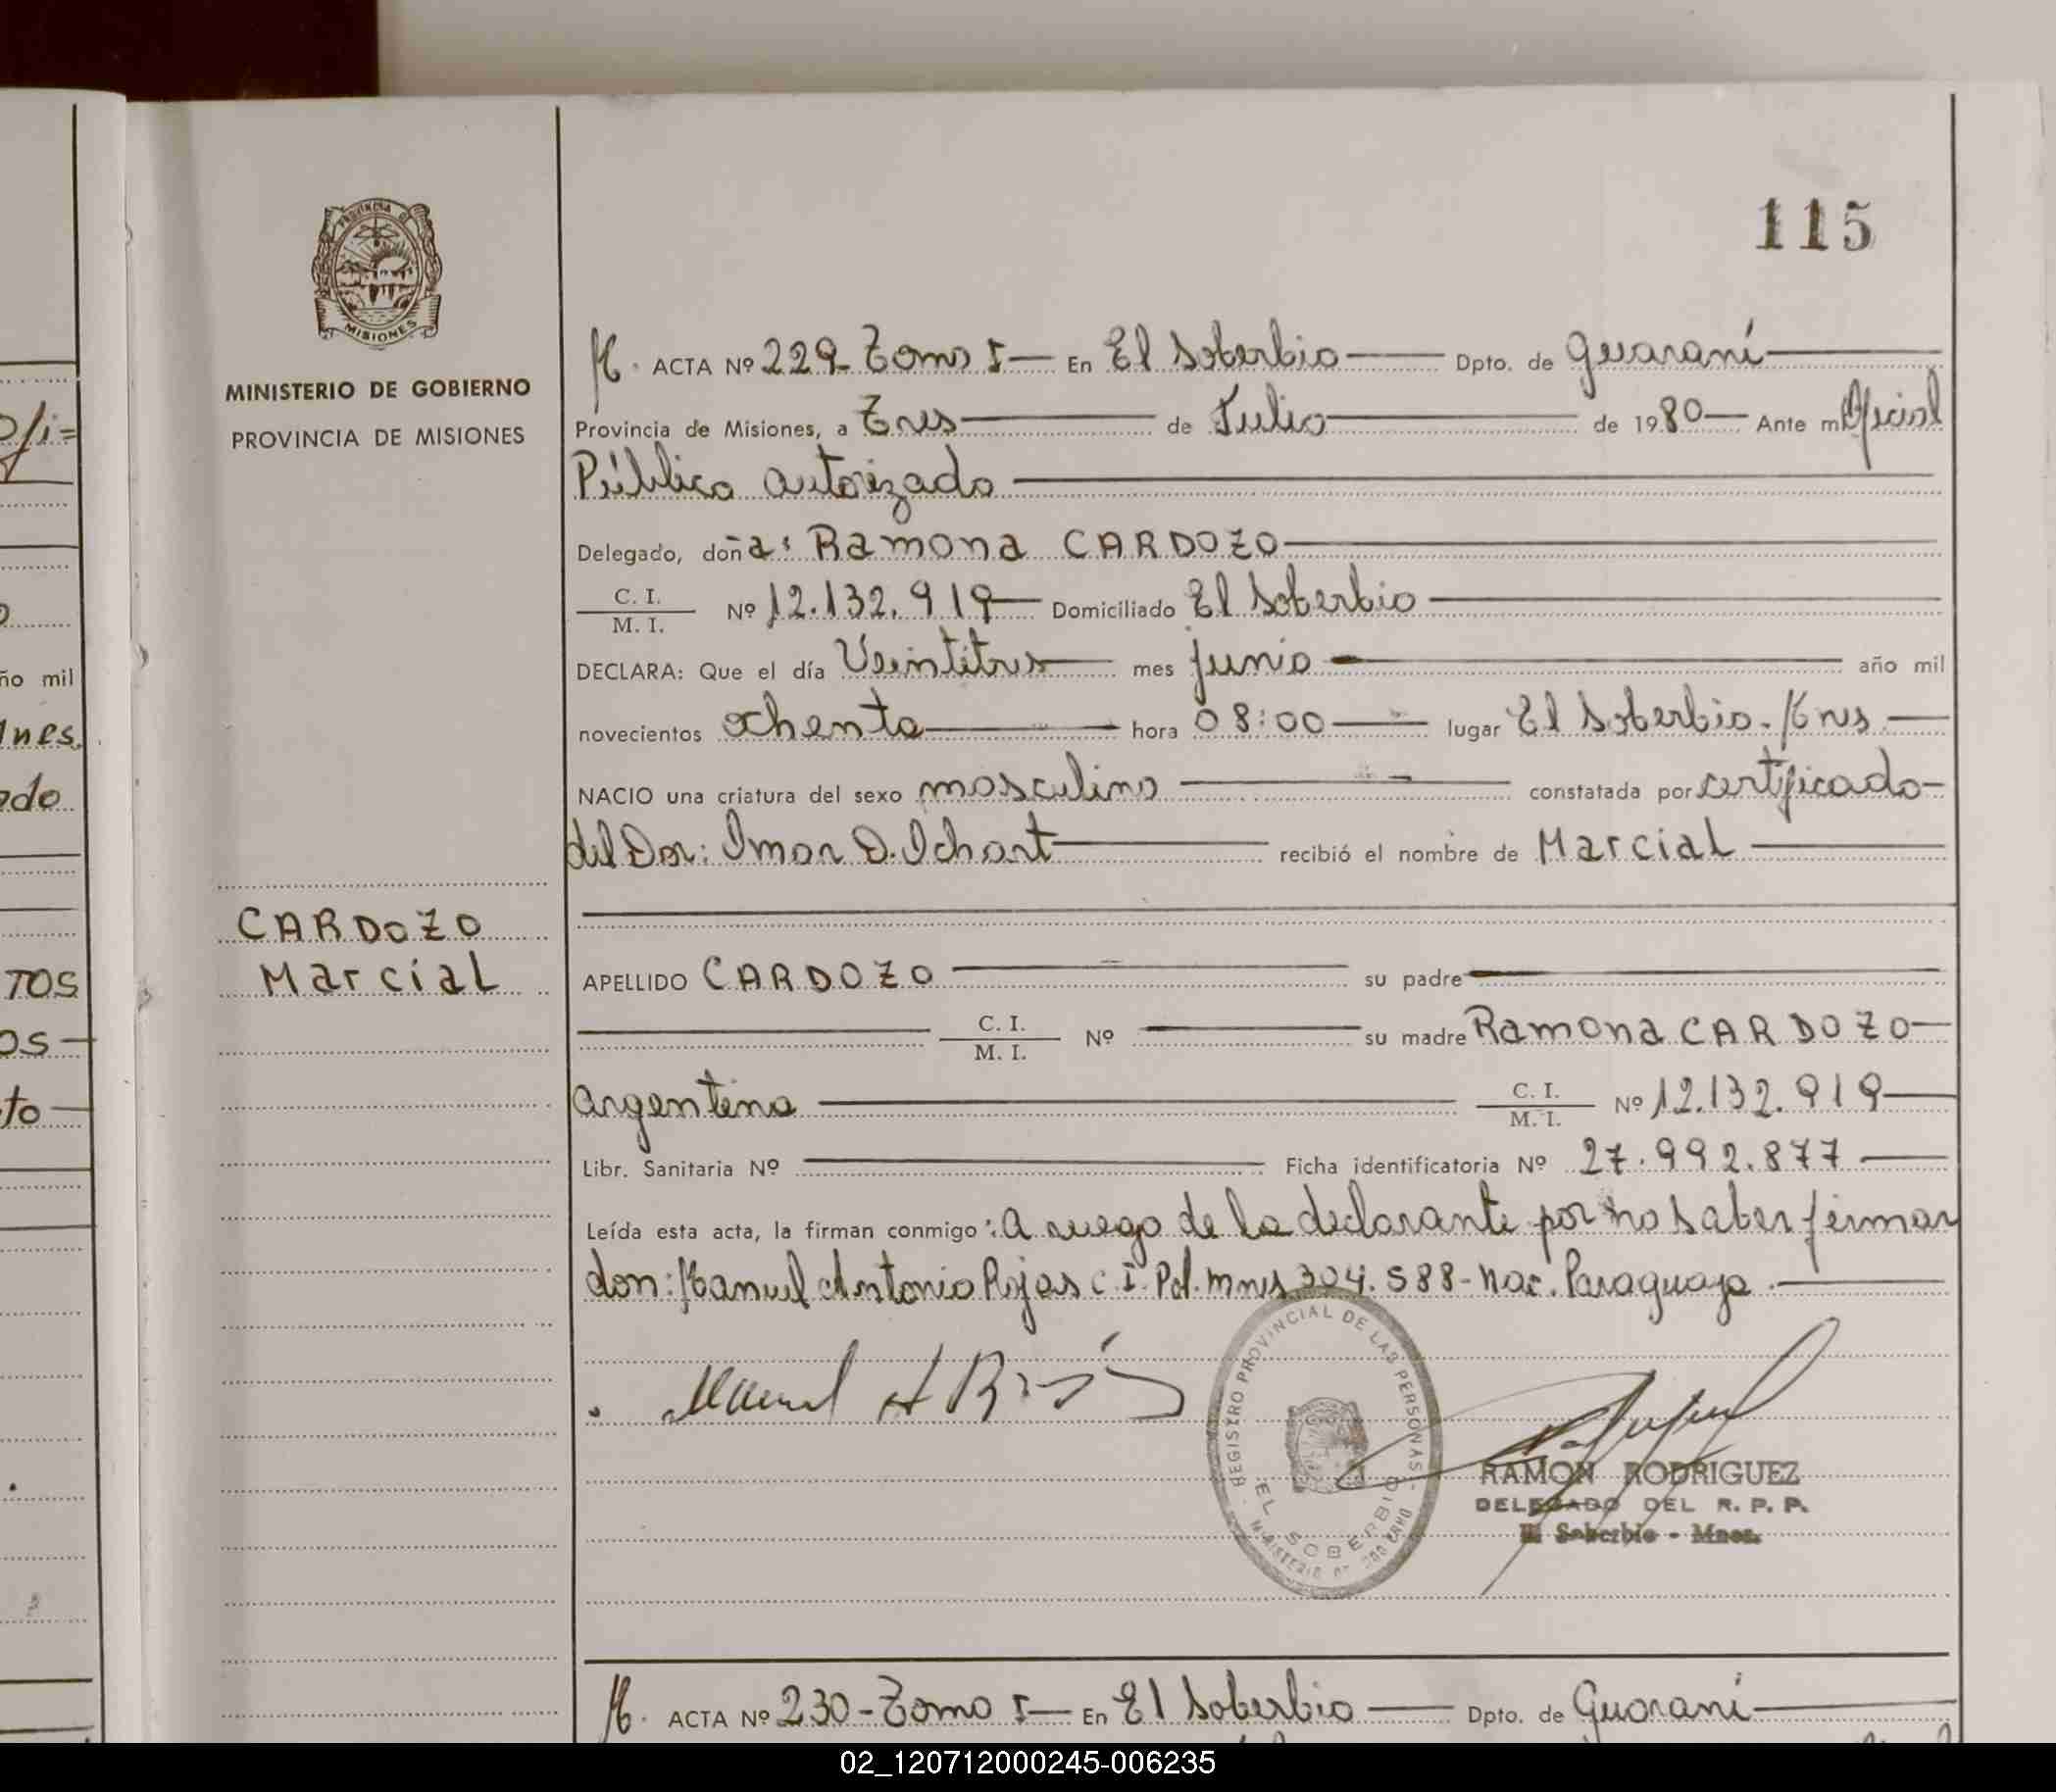 115
PROVINCIA D
MISIONES
MINISTERIO DE GOBIERNO
PROVINCIA DE MISIONES
M. ACTA Nº 229 Tomo I En El Soberbio Dpto. de Guaraní
Provincia de Misiones, a Tres de Julio de 1980 Ante mi Oficial
Público autorizado
Delegado, doña: Ramona CARDOZO
C. I.
M. I. Nº 12.132.919 Domiciliado El Soberbio
DECLARA: Que el día Veintitres mes junio año mil
novecientos ochenta hora 08:00 lugar El Soberbio. Mnes.
NACIO una criatura del sexo masculino constatada por certificado
del Dor: Omar D. Ichart recibió el nombre de Marcial
CARDOZO
Marcial
APELLIDO CARDOZO su padre
C. I.
M. I. Nº su madre Ramona CARDOZO
argentina C. I.
M. I. Nº 12.132.919
Libr. Sanitaria Nº Ficha identificatoria Nº 27.992.877
Leída esta acta, la firman conmigo: A ruego de la declarante por no saber firmar
don: Manuel Antonio Rojas C.I. Pol. Mnes 304.588- Nac. Paraguaya.
Manuel A Rojas
REGISTRO PROVINCIAL DE LAS PERSONAS
EL SOBERBIO
MINISTERIO DE GOBIERNO
RAMON RODRIGUEZ
DELEGADO DEL R. P. P.
El Soberbio - Mnes.
M. ACTA Nº 230 - Tomo I En El Soberbio Dpto. de Guaraní
ño mil
nes.
ado
TOS
os
to
02_120712000245-006235